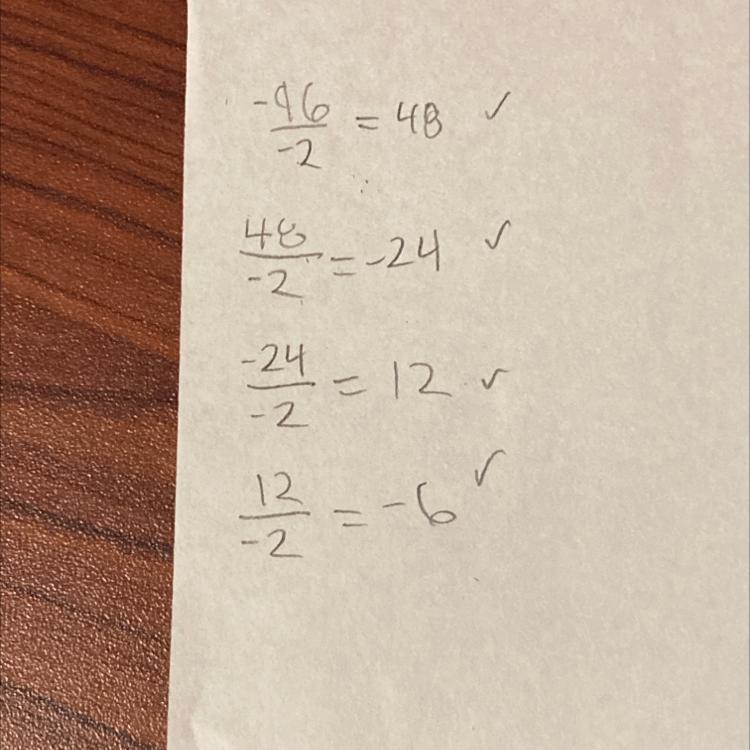 -96/-2 = 48 ✓
48/-2 = -24 ✓
-24/-2 = 12 ✓
12/-2 = -6 ✓